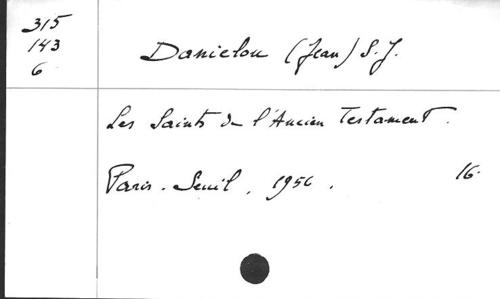 315
143
6
Danielou (Jean) S.J.
Les Saints de l'Ancien Testament.
Paris. Seuil, 1956. 16.